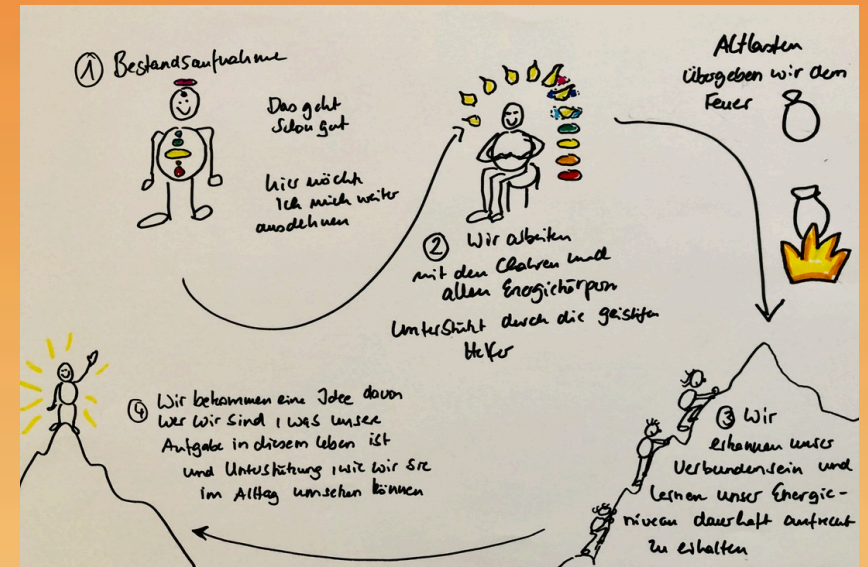 ① Bestandsaufnahme
Das geht
Schon gut
hier möcht
ich mich weiter
ausdehnen
② Wir arbeiten
mit den Chakren und
allen Energiekörpern
Unterstützt durch die geistigen
Helfer
Altlasten
übergeben wir dem
Feuer
③ Wir
erkennen unser
Verbundensein und
lernen unser Energie-
niveau dauerhaft aufrecht
zu erhalten
④ Wir bekommen eine Idee davon
wer wir sind, was unsere
Aufgabe in diesem Leben ist
und Unterstützung, wie wir sie
im Alltag umsetzen können